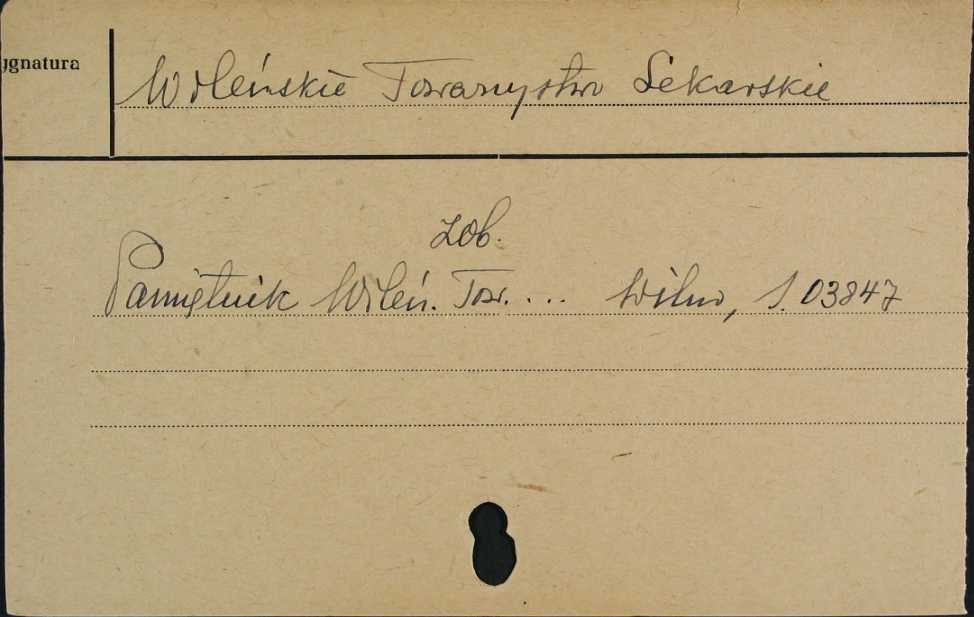 ygnatura
Wileńskie Towarzystwo Lekarskie
zob.
Pamiętnik Wileń. Tow. ... Wilno, S. 03847